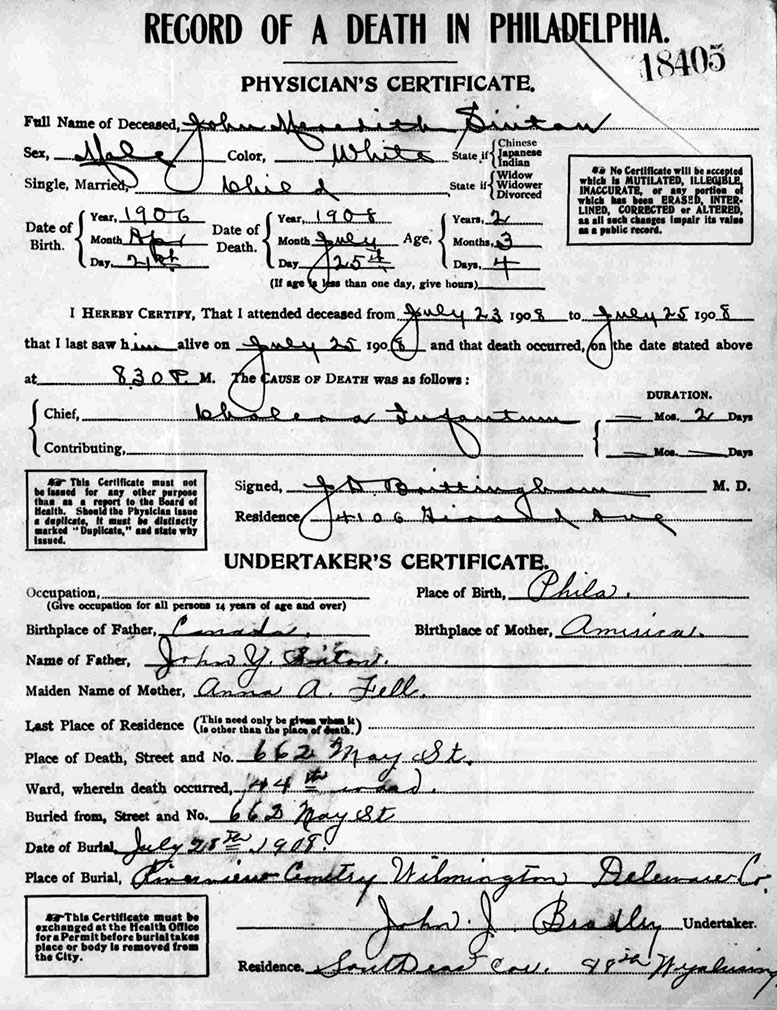 RECORD OF A DEATH IN PHILADELPHIA.
18405
PHYSICIAN'S CERTIFICATE.
Full Name of Deceased, John Meredith Sinton
Sex, Male Color, White State if { Chinese Japanese Indian
Single, Married, Child State if { Widow Widower Divorced
No Certificate will be accepted
which is MUTILATED, ILLEGIBLE,
INACCURATE, or any portion of
which has been ERASED, INTER-
LINED, CORRECTED or ALTERED,
as all such changes impair its value
as a public record.
Date of Birth. { Year, 1906 Month Apr Day, 21st
Date of Death. { Year, 1908 Month July Day 25th
Age, { Years, 2 Months, 3 Days, 4
(If age is less than one day, give hours)
I HEREBY CERTIFY, That I attended deceased from July 23 1908 to July 25 1908
that I last saw him alive on July 25 1908 and that death occurred, on the date stated above
at 8.30 P. M. The CAUSE OF DEATH was as follows:
DURATION.
Chief, Cholera Infantum — Mos. 2 Days
Contributing, — Mos. — Days
This Certificate must not
be issued for any other purpose
than as a report to the Board of
Health. Should the Physician issue
a duplicate, it must be distinctly
marked "Duplicate," and state why
issued.
Signed, J D Brittingham M. D.
Residence, 4106 Girard Ave
UNDERTAKER'S CERTIFICATE.
Occupation, Place of Birth, Phila.
(Give occupation for all persons 14 years of age and over)
Birthplace of Father, Canada. Birthplace of Mother, America.
Name of Father, John Y. Sinton.
Maiden Name of Mother, Anna A. Fell.
Last Place of Residence (This need only be given when it is other than the place of death.)
Place of Death, Street and No. 662 May St.
Ward, wherein death occurred, 44th ward.
Buried from, Street and No. 662 May St
Date of Burial, July 28th, 1908.
Place of Burial, Riverview Cemetry Wilmington Deleware Co.
This Certificate must be
exchanged at the Health Office
for a Permit before burial takes
place or body is removed from
the City.
John J. Bradley Undertaker.
Residence. South East Cor. 48th Wyalusing